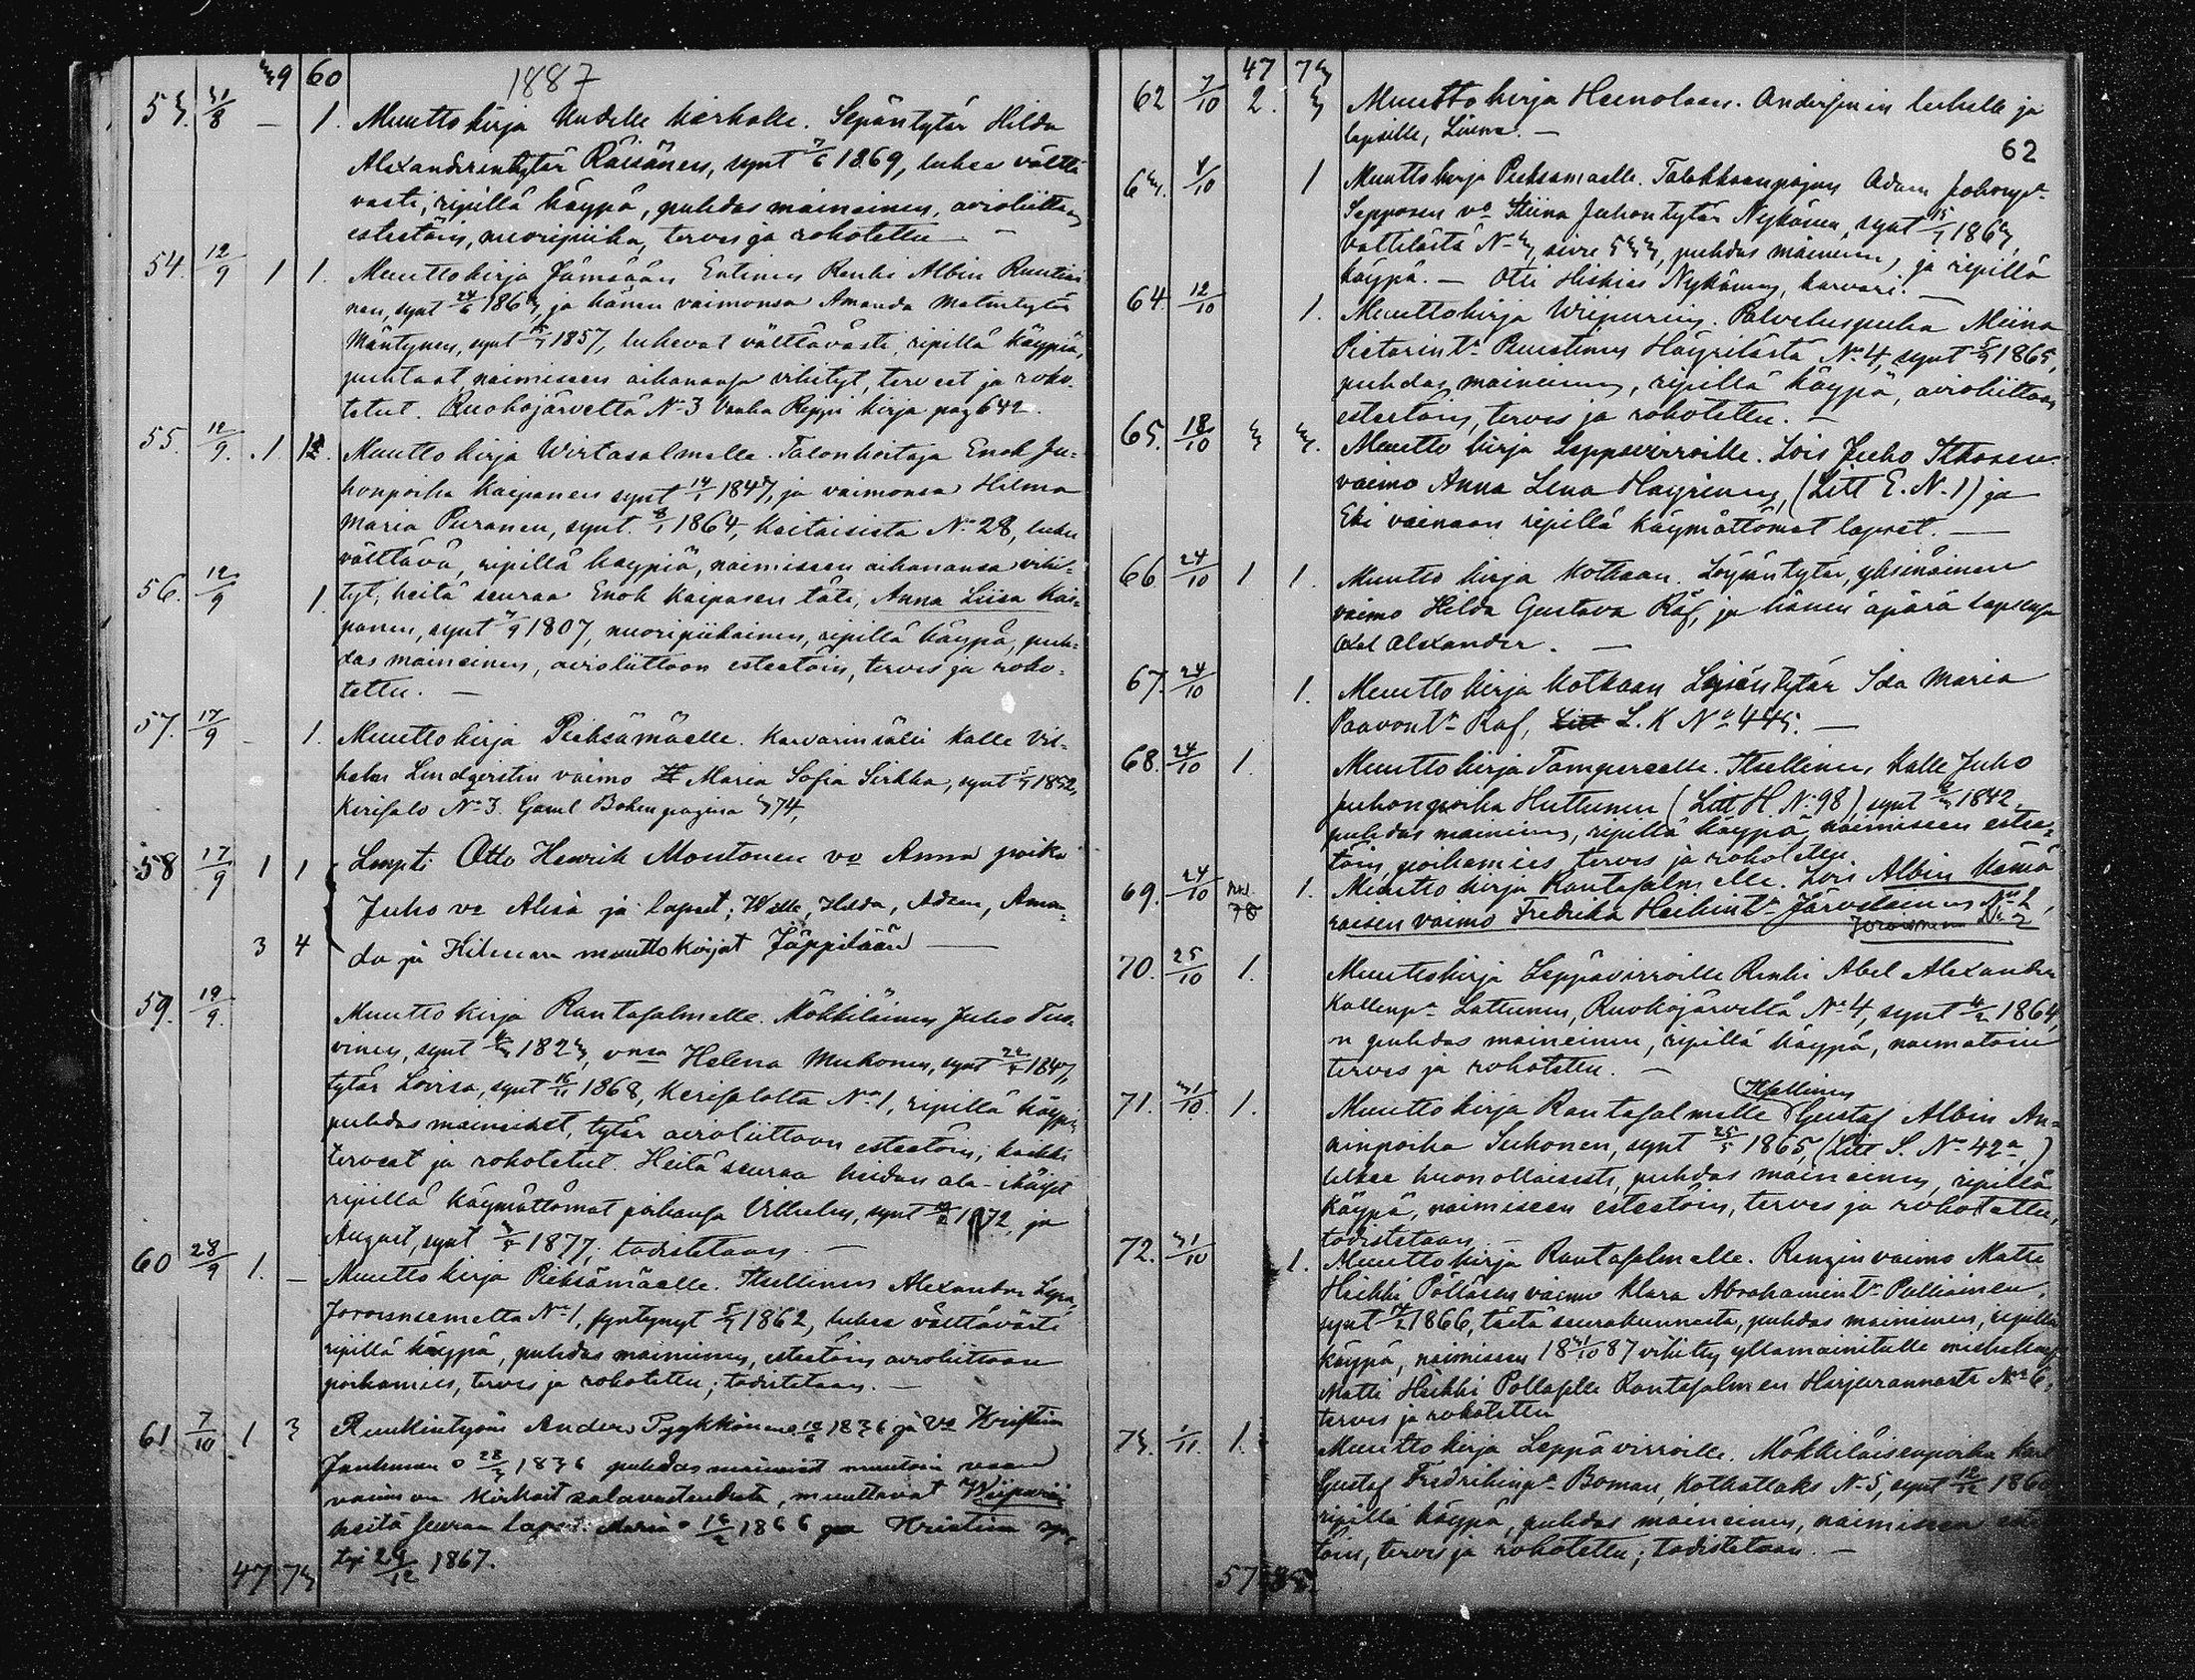 39 60 1887
53. 31/8 — 1. Muuttokirja Uudelle kirkolle. Sepäntytär Hilda
Alexanderintytär Räisänen, synt 7/6 1869, lukee välttä
västi, ripillä käypä, puhdas maineinen, avioliittoon
esteetöin, nuoripiika, terves ja rokotettu —
54. 12/9 1 1. Muuttokirja Jämsään Entinen Renki Albin Ruuti
nen, synt 24/6 1863, ja hänen vaimonsa Amanda Matintytär
Mäntynen, synt 1857, lukevat välttävästi, ripillä käypiä,
puhtaat, naimiseen aikanansa vihityt, terveet ja roko-
tetut. Ruokojärveltä No 3 Vanha Rippi kirja pag 642.
55. 12/9. 1 1. Muutto kirja Wirtasalmelle. Talonhoitaja Enok Ju-
honpoika Kaipanen synt 14/1 1847, ja vaimonsa Hilma
Maria Puranen, synt. 8/1 1864, Kaitaisista No 28, luku
välttävä, ripillä käypiä, naimiseen aikanansa vihi-
56. 12/9 1. tyt, heitä seuraa Enok Kaipasen täti, Anna Liisa Kai-
panen, synt 1807, nuoripiikainen, ripillä käypä, puh-
das maineinen, avioliittoon esteetöin, terves ja roko-
tettu. —
57. 17/9 — 1. Muuttokirja Pieksämäelle. Karvarinsälli Kalle Vil-
helm Lindqvistin vaimo Maria Sofia Sirkka, synt 1852,
Kerisalo No 3. Gaml Boken pagina 374,
58 17/9 1 1 Lmpti Otto Henrik Moutonen vo Anna poika
Juho vo Alisa ja lapset; Wille, Hilda, Adam, Aman-
3 4 da ja Hilman muuttokirjat Jäppilään —
59. 19/9. Muutto kirja Rantasalmelle. Mökkiläinen Juho Tuo-
vinen, synt 1823, vmsa Helena Muhonen, synt 1847,
tytär Lovisa, synt 16/11 1868, Kerisalolta No 1, ripillä käypiä
puhdas maineiset, tytär avioliittoon esteetöin, kaikki
terveet ja rokotetut. Heitä seuraa heidän ala-ikäiset
ripillä käymättömät poikansa Vilhelm, synt 1872, ja
August, synt 1877; todistetaan. —
60 28/9 1. — Muutto kirja Pieksämäelle. Itsellinen Alexander
Joroisniemeltä No 1, syntynyt 1862, lukee välttävästi
ripillä käypä, puhdas maineinen, esteetöin avioliittoon
poikamies, terves ja rokotettu; todistetaan. —
61 7/10 1 3 Ruukintyöm Anders Pyykkönen 1836 ja vo Kristina
Jankman o 28/3 1836 puhdasmaineiset muutoin vaan
vaimo on salavuoteudesta, muuttavat Wiipuriin
heitä seuraa lapset: Maria o 16/2 1866 ja Kristina
29/12 1867.
47 73
47 73
62 7/10 2. 3 Muutto kirja Heinolaan. Andersinin leskelle ja
lapsille, Liena. —
62
63. 8/10 1 Muuttokirja Pieksämaelle. Talokkaanpojan Adam Juhonp.
Sepposen vo Stiina Juhontytär Nykänen, synt 15/7 1863,
Vattilasta No 3, sivu 533, puhdas maineinen, ja ripillä
käypä. — Otti Hiskias Nykänen, karvari. —
64. 12/10 1. Muuttokirja Wiipuriin. Palveluspiika Miina
Pietarint. Puustinen Häyrilästä No 4, synt 1865,
puhdas maineinen, ripillä käypä, avioliittoon
esteetöin, terves ja rokotettu. —
65. 18/10 3 3. Muutto kirja Leppävirroille. Lois Juho Itkosen
vaimo Anna Lena Häyrinen, (Litt E. N. 1) ja
Eki vainaan ripillä käymättömät lapset. —
66. 24/10 1 1. Muutto kirja Kotkaan. Loisintytär, yksinäinen
vaimo Hilda Gustava Räf, ja hänen äpärä lapsensa
Axel Alexander. —
67. 24/10 1. Muutto kirja Kotkaan Loisintytär Ida Maria
Paavont. Räf, L. K No 445. —
68. 24/10 1. Muutto kirja Tampereelle. Itsellinen Kalle Juho
Juhonpoika Huttunen (Litt H. No 98), synt 1842,
puhdas maineinen, ripillä käypä, naimiseen estee-
töin, poikamies, terves ja rokotettu.
69. 24/10 1. Muutto kirja Rantasalmelle. Lois Albin Kämä
räisen vaimo Fredrika Heikint. Järveläinen No 2,
70. 25/10 1. Muuttokirja Leppävirroille Renki Abel Alexander
Kallenp. Lattunen, Ruokojärveltä No 4, synt 1864,
n puhdas maineinen, ripillä käypä, naimatoin
terves ja rokotettu. —
71. 31/10. 1. Muutto kirja Rantasalmelle Itsellinen Gustaf Albin An-
ninpoika Suhonen, synt 25/5 1865, (Litt S. No 42a,)
lukee huonollaisesti, puhdas maineinen, ripillä
käypä, naimiseen esteetöin, terves ja rokotettu,
todistetaan. —
72. 31/10 1. Muutto kirja Rantasalmelle. Rengin vaimo Matti
Heikki Pölläsen vaimo Klara Abrahamint. Pulliainen,
synt 14/2 1866, tästä seurakunnasta, puhdas maineinen, ripillä
käypä, naimiseen 18 31/10 87 vihitty yllämainitulle miehellensä
Matti Heikki Pölläselle Rantasalmen Harjurannasta No 6,
terves ja rokotettu
73. 1/11. 1. Muutto kirja Leppävirroille. Mökkiläisenpoika Karl
Gustaf Fredrikinp. Boman, Kotkatlaks No 5, synt 12/12
ripillä käypä, puhdas maineinen, naimiseen
töin, terves ja rokotettu; todistetaan. —
57 85